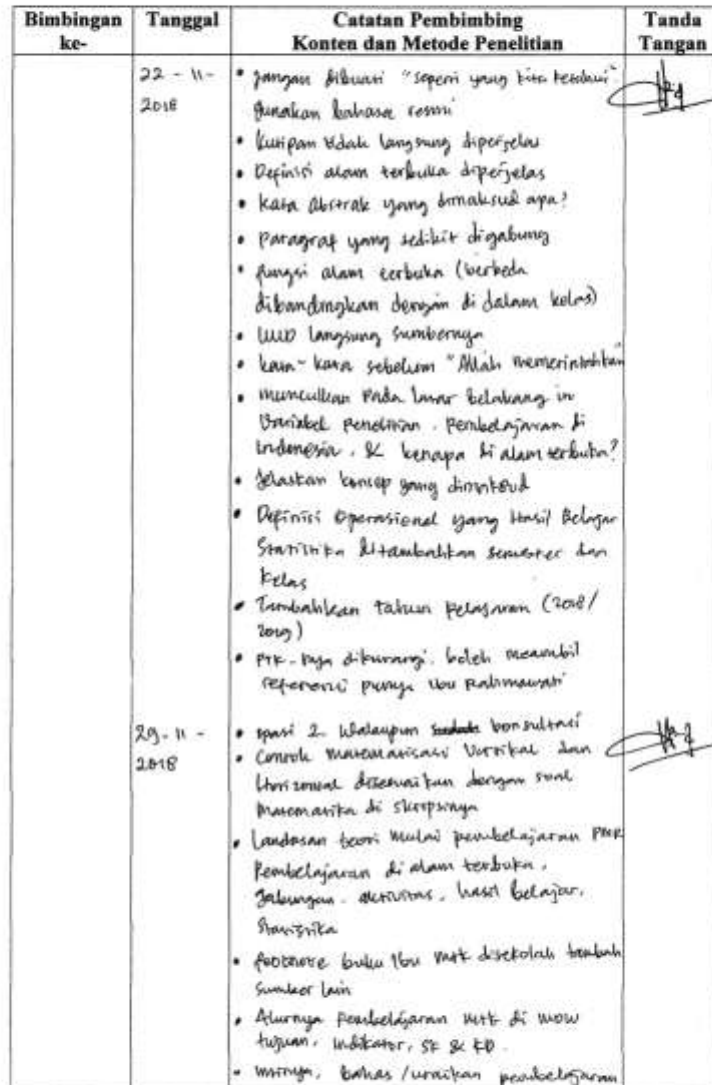 Bimbingan ke-
Tanggal
Catatan Pembimbing
Konten dan Metode Penelitian
Tanda Tangan
22 - 11 -
2018
• Jangan dibuat "seperti yang kita ketahui"
gunakan bahasa resmi
• Kutipan tidak langsung diperjelas
• Definisi alam terbuka diperjelas
• Kata Abstrak yang dimaksud apa?
• Paragraf yang sedikit digabung
• fungsi alam terbuka (berbeda
dibandingkan dengan di dalam kelas)
• UUD langsung sumbernya
• kata-kata sebelum "Allah memerintahkan
• munculkan pada latar belakang
Variabel penelitian, Pembelajaran di
Indonesia, & kenapa di alam terbuka?
• Jelaskan konsep yang dimaksud
• Definisi Operasional yang Hasil Belajar
Statistika ditambahkan semester dan
kelas
• Tambahkan tahun pelajaran (2018/
2019)
• PTK-nya dikurangi. boleh mengambil
referensi punya Ibu Rahmawati
29 - 11 -
2018
• spasi 2. Walaupun konsultasi
• Contoh matematisasi Vertikal dan
Horizontal disesuaikan dengan soal
Matematika di skripsinya
• Landasan teori mulai pembelajaran PMR
Pembelajaran di alam terbuka,
Gabungan, aktivitas, hasil belajar,
Statistika
• footnote buku Ibu mtk disekolah tambah
Sumber lain
• Alurnya Pembelajaran mtk di
tujuan, Indikator, SK & KD.
• bahas / uraikan pembelajaran